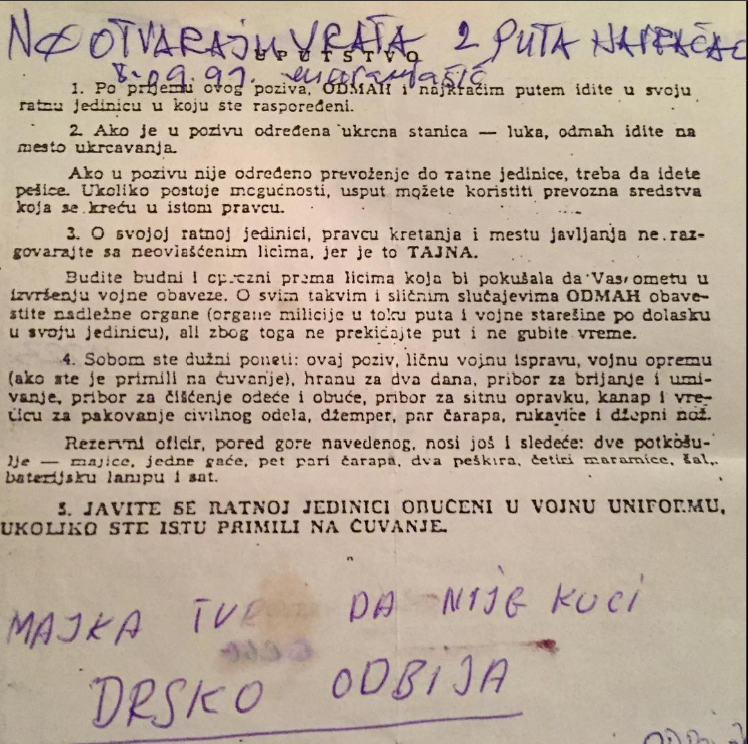 NE OTVARAJU VRATA 2 PUTA
UPUTSTVO
8.09.91.
1. Po prijemu ovog poziva, ODMAH i najkraćim putem idite u svoju
ratnu jedinicu u koju ste raspoređeni.
2. Ako je u pozivu određena ukrcna stanica — luka, odmah idite na
mesto ukrcavanja.
Ako u pozivu nije određeno prevoženje do ratne jedinice, treba da idete
pešice. Ukoliko postoje mogućnosti, usput možete koristiti prevozna sredstva
koja se kreću u istom pravcu.
3. O svojoj ratnoj jedinici, pravcu kretanja i mestu javljanja ne raz-
govarajte sa neovlašćenim licima, jer je to TAJNA.
Budite budni i oprezni prema licima koja bi pokušala da Vas ometu u
izvršenju vojne obaveze. O svim takvim i sličnim slučajevima ODMAH obave-
stite nadležne organe (organe milicije u toku puta i vojne starešine po dolasku
u svoju jedinicu), ali zbog toga ne prekidajte put i ne gubite vreme.
4. Sobom ste dužni poneti: ovaj poziv, ličnu vojnu ispravu, vojnu opremu
(ako ste je primili na čuvanje), hranu za dva dana, pribor za brijanje i umi-
vanje, pribor za čišćenje odeće i obuće, pribor za sitnu opravku, kanap i vre-
ćicu za pakovanje civilnog odela, džemper, par čarapa, rukavice i džepni nož.
Rezervni oficir, pored gore navedenog, nosi još i sledeće: dve potkošu-
lje — majice, jedne gaće, pet pari čarapa, dva peškira, četiri maramice, šal,
baterijsku lampu i sat.
5. JAVITE SE RATNOJ JEDINICI OBUČENI U VOJNU UNIFORMU,
UKOLIKO STE ISTU PRIMILI NA ČUVANJE.
MAJKA DA NIJE KUCI
DRSKO ODBIJA